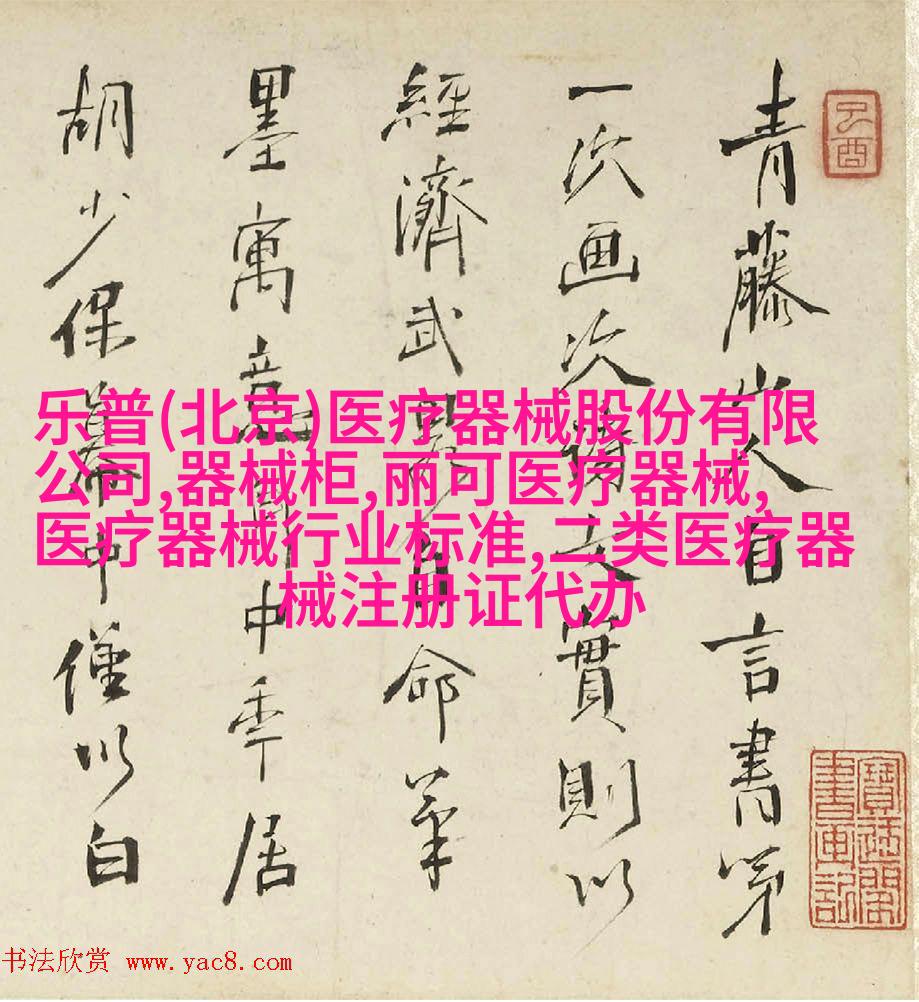 青藤山人自言書第
一次画次
文實則以
經濟武
命筆
墨寓意
中年居
胡少保幕中僅以白
乐普(北京)医疗器械股份有限
公司,器械柜,丽可医疗器械,
医疗器械行业标准,二类医疗器
械注册证代办
书法欣赏 www.yac8.com